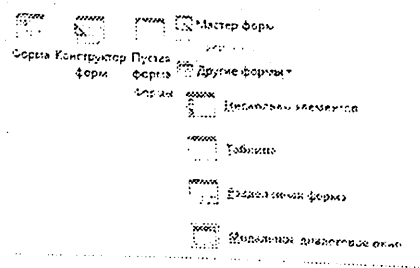 Форма Конструктор форм Пустая форма
Мастер форм
Другие формы
Формы
Несколько элементов
Таблица
Разделенная форма
Модальное диалоговое окно